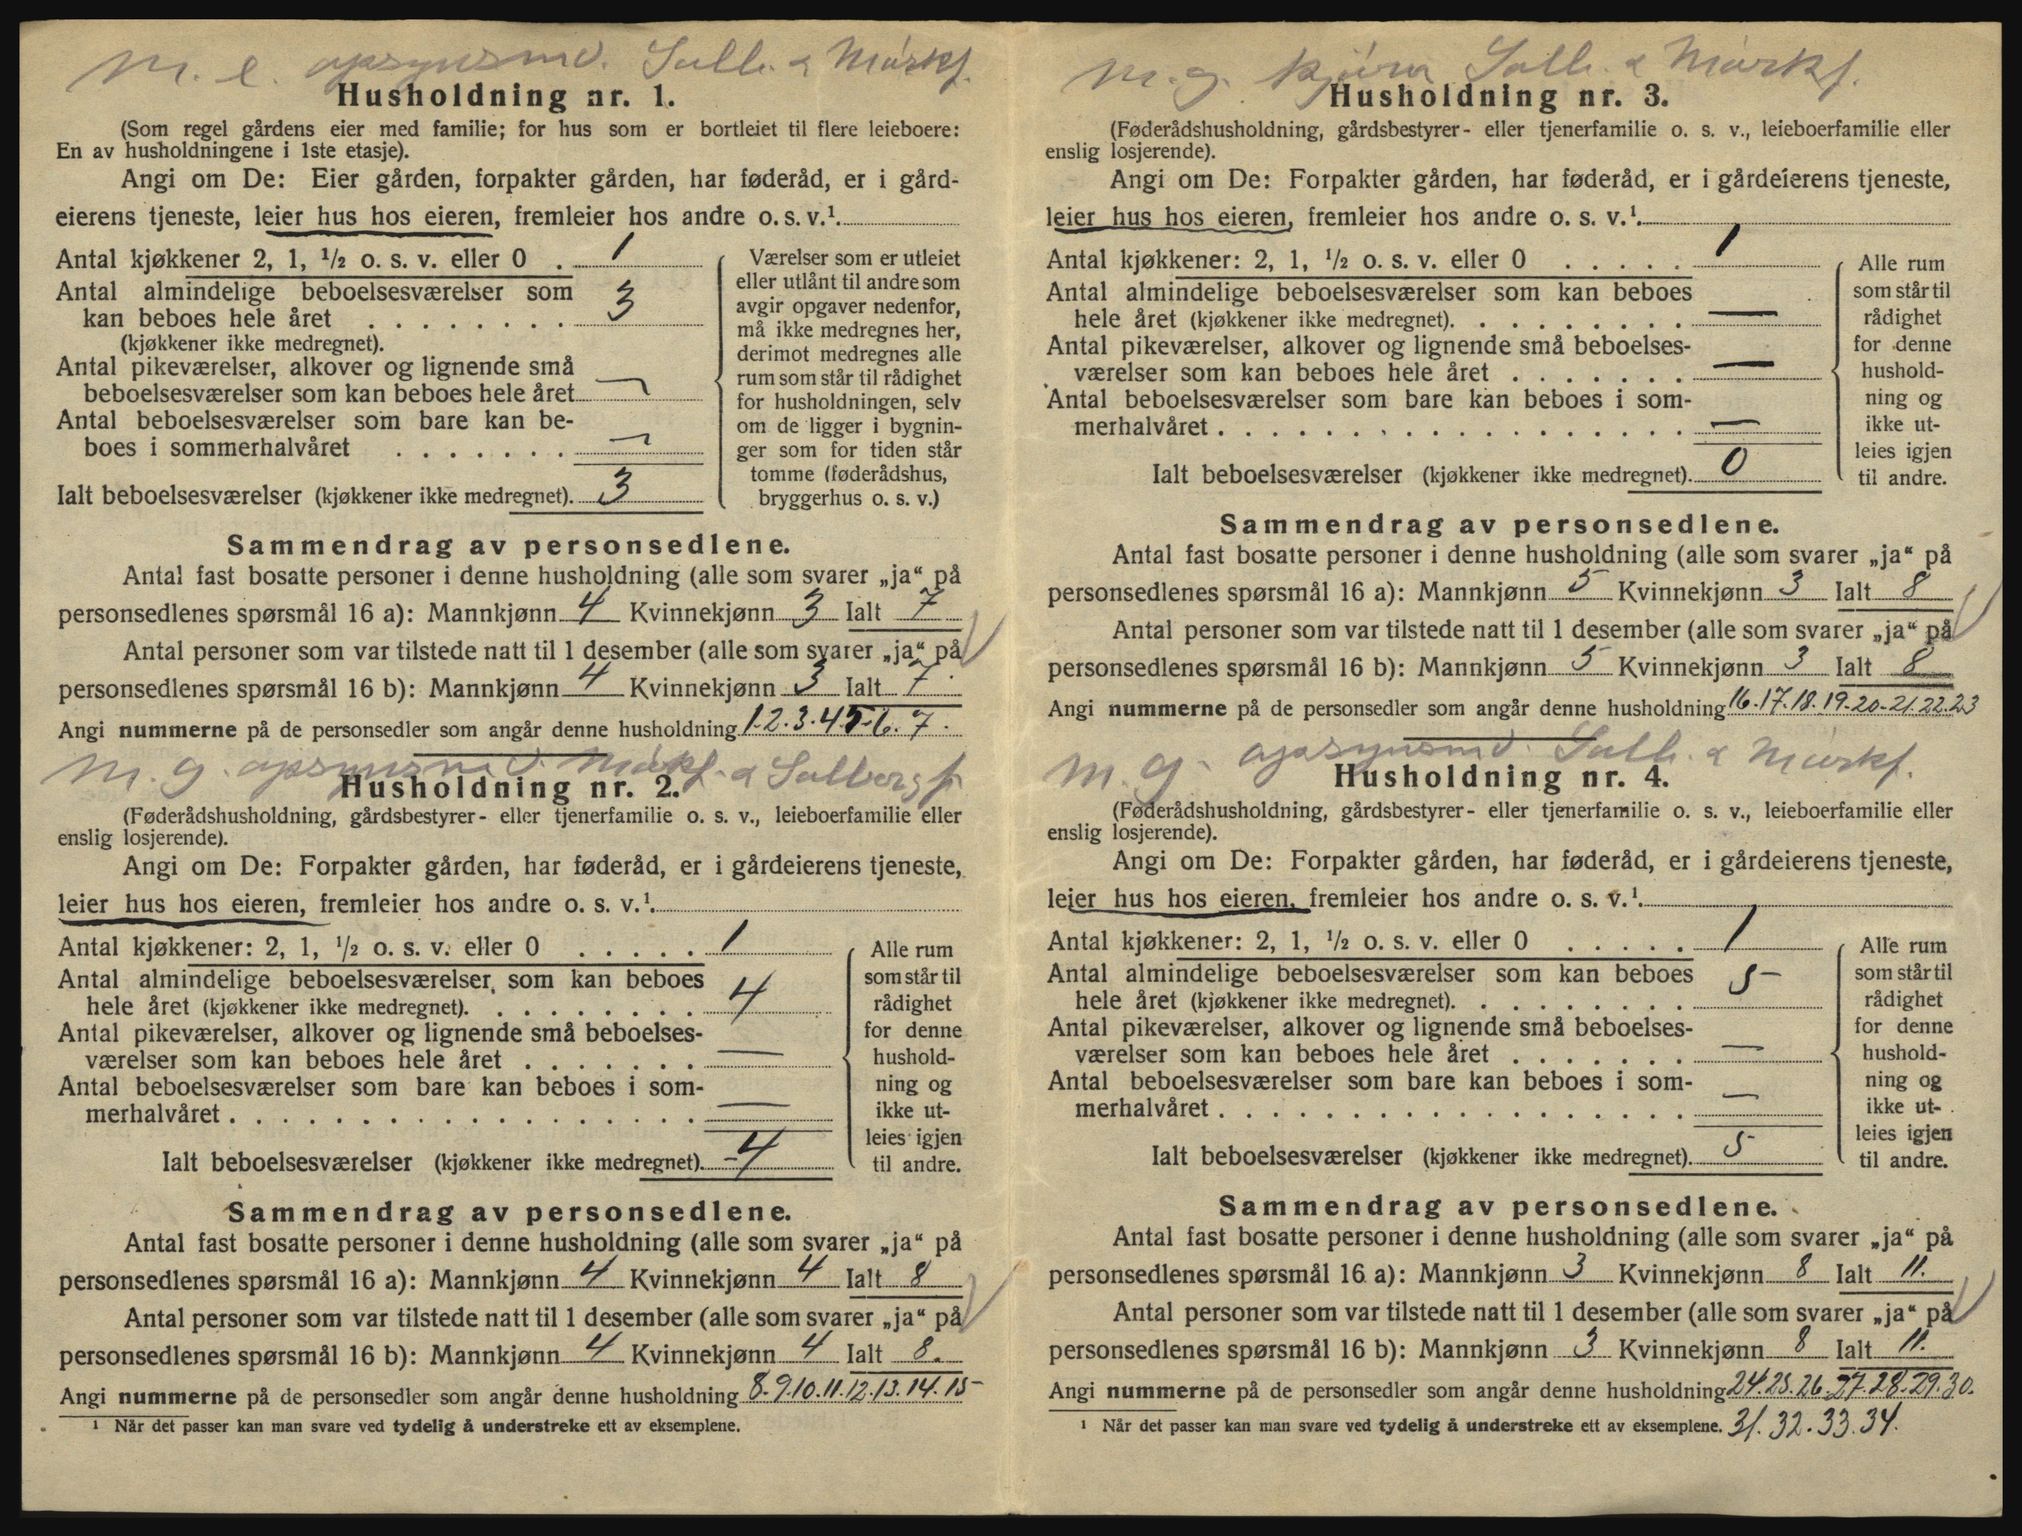 M. e. opsynsmd. Solb. & Mørkf.
Husholdning nr. 1.
(Som regel gårdens eier med familie; for hus som er bortleiet til flere leieboere:
En av husholdningene i 1ste etasje).
Angi om De: Eier gården, forpakter gården, har føderåd, er i gård-
eierens tjeneste, leier hus hos eieren, fremleier hos andre o. s. v.¹.
Antal kjøkkener 2, 1, ½ o. s. v. eller 0 . 1
Antal almindelige beboelsesværelser som
kan beboes hele året . . . . . . . . 3
(kjøkkener ikke medregnet).
Antal pikeværelser, alkover og lignende små
beboelsesværelser som kan beboes hele året —
Antal beboelsesværelser som bare kan be-
boes i sommerhalvåret . . . . . . . —
Ialt beboelsesværelser (kjøkkener ikke medregnet). 3
Værelser som er utleiet
eller utlånt til andre som
avgir opgaver nedenfor,
må ikke medregnes her,
derimot medregnes alle
rum som står til rådighet
for husholdningen, selv
om de ligger i bygnin-
ger som for tiden står
tomme (føderådshus,
bryggerhus o. s. v.)
Sammendrag av personsedlene.
Antal fast bosatte personer i denne husholdning (alle som svarer „ja“ på
personsedlenes spørsmål 16 a): Mannkjønn 4 Kvinnekjønn 3 Ialt 7
Antal personer som var tilstede natt til 1 desember (alle som svarer „ja“ på
personsedlenes spørsmål 16 b): Mannkjønn 4 Kvinnekjønn 3 Ialt 7.
Angi nummerne på de personsedler som angår denne husholdning 1.2.3.4.5.6.7.
M. g. opsynsmd. Mørkf. & Solbergf.
Husholdning nr. 2.
(Føderådshusholdning, gårdsbestyrer- eller tjenerfamilie o. s. v., leieboerfamilie eller
enslig losjerende).
Angi om De: Forpakter gården, har føderåd, er i gårdeierens tjeneste,
leier hus hos eieren, fremleier hos andre o. s. v.¹.
Antal kjøkkener: 2, 1, ½ o. s. v. eller 0 . . . . . 1
Antal almindelige beboelsesværelser som kan beboes
hele året (kjøkkener ikke medregnet). . . . . . . . . 4
Antal pikeværelser, alkover og lignende små beboelses-
værelser som kan beboes hele året . . . . . . . —
Antal beboelsesværelser som bare kan beboes i som-
merhalvåret . . . . . . . . . . . . . . . . . . —
Ialt beboelsesværelser (kjøkkener ikke medregnet). 4
Alle rum
som står til
rådighet
for denne
hushold-
ning og
ikke ut-
leies igjen
til andre.
Sammendrag av personsedlene.
Antal fast bosatte personer i denne husholdning (alle som svarer „ja“ på
personsedlenes spørsmål 16 a): Mannkjønn 4 Kvinnekjønn 4 Ialt 8
Antal personer som var tilstede natt til 1 desember (alle som svarer „ja“ på
personsedlenes spørsmål 16 b): Mannkjønn 4 Kvinnekjønn 4 Ialt 8.
Angi nummerne på de personsedler som angår denne husholdning 8.9.10.11.12.13.14.15
¹ Når det passer kan man svare ved tydelig å understreke ett av eksemplene.
M. g. kjøra Solb. & Mørkf.
Husholdning nr. 3.
(Føderådshusholdning, gårdsbestyrer- eller tjenerfamilie o. s. v., leieboerfamilie eller
enslig losjerende).
Angi om De: Forpakter gården, har føderåd, er i gårdeierens tjeneste,
leier hus hos eieren, fremleier hos andre o. s. v.¹.
Antal kjøkkener: 2, 1, ½ o. s. v. eller 0 . . . . . 1
Antal almindelige beboelsesværelser som kan beboes
hele året (kjøkkener ikke medregnet). . . . . . . . . —
Antal pikeværelser, alkover og lignende små beboelses-
værelser som kan beboes hele året . . . . . . . —
Antal beboelsesværelser som bare kan beboes i som-
merhalvåret . . . . . . . . . . . . . . . . . . —
Ialt beboelsesværelser (kjøkkener ikke medregnet). 0
Alle rum
som står til
rådighet
for denne
hushold-
ning og
ikke ut-
leies igjen
til andre.
Sammendrag av personsedlene.
Antal fast bosatte personer i denne husholdning (alle som svarer „ja“ på
personsedlenes spørsmål 16 a): Mannkjønn 5 Kvinnekjønn 3 Ialt 8
Antal personer som var tilstede natt til 1 desember (alle som svarer „ja“ på
personsedlenes spørsmål 16 b): Mannkjønn 5 Kvinnekjønn 3 Ialt 8
Angi nummerne på de personsedler som angår denne husholdning 16.17.18.19.20.21.22.23
M. g. opsynsmd. Solb. & Mørkf.
Husholdning nr. 4.
(Føderådshusholdning, gårdsbestyrer- eller tjenerfamilie o. s. v., leieboerfamilie eller
enslig losjerende).
Angi om De: Forpakter gården, har føderåd, er i gårdeierens tjeneste,
leier hus hos eieren, fremleier hos andre o. s. v.¹.
Antal kjøkkener: 2, 1, ½ o. s. v. eller 0 . . . . . 1
Antal almindelige beboelsesværelser som kan beboes
hele året (kjøkkener ikke medregnet). . . . . . . . . 5
Antal pikeværelser, alkover og lignende små beboelses-
værelser som kan beboes hele året . . . . . . . —
Antal beboelsesværelser som bare kan beboes i som-
merhalvåret . . . . . . . . . . . . . . . . . . —
Ialt beboelsesværelser (kjøkkener ikke medregnet). 5
Alle rum
som står til
rådighet
for denne
hushold-
ning og
ikke ut-
leies igjen
til andre.
Sammendrag av personsedlene.
Antal fast bosatte personer i denne husholdning (alle som svarer „ja“ på
personsedlenes spørsmål 16 a): Mannkjønn 3 Kvinnekjønn 8 Ialt 11.
Antal personer som var tilstede natt til 1 desember (alle som svarer „ja“ på
personsedlenes spørsmål 16 b): Mannkjønn 3 Kvinnekjønn 8 Ialt 11.
Angi nummerne på de personsedler som angår denne husholdning 24.25.26.27.28.29.30.
¹ Når det passer kan man svare ved tydelig å understreke ett av eksemplene. 31.32.33.34.